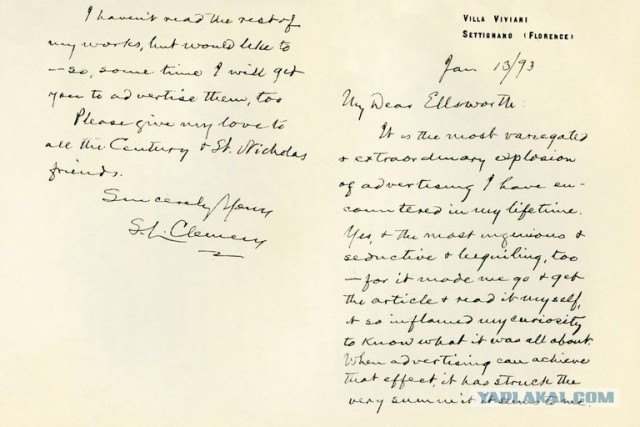 VILLA VIVIANI
SETTIGNANO (FLORENCE)
Jan 13/93
My Dear Ellsworth:
It is the most variegated
& extraordinary explosion
of advertising I have en-
countered in my lifetime.
Yes, & the most ingenious &
seductive & beguiling, too
—for it made me go & get
the article & read it myself,
it so inflamed my curiosity
to know what it was all about.
When advertising can achieve
that effect, it has struck the
very summit it seems to me.
I haven't read the rest of
my works, but would like to
—so, some time I will get
you to advertise them, too
Please give my love to
all the Century & St. Nicholas
friends.
Sincerely Yours
S. L. Clemens
YAPLAKAL.COM